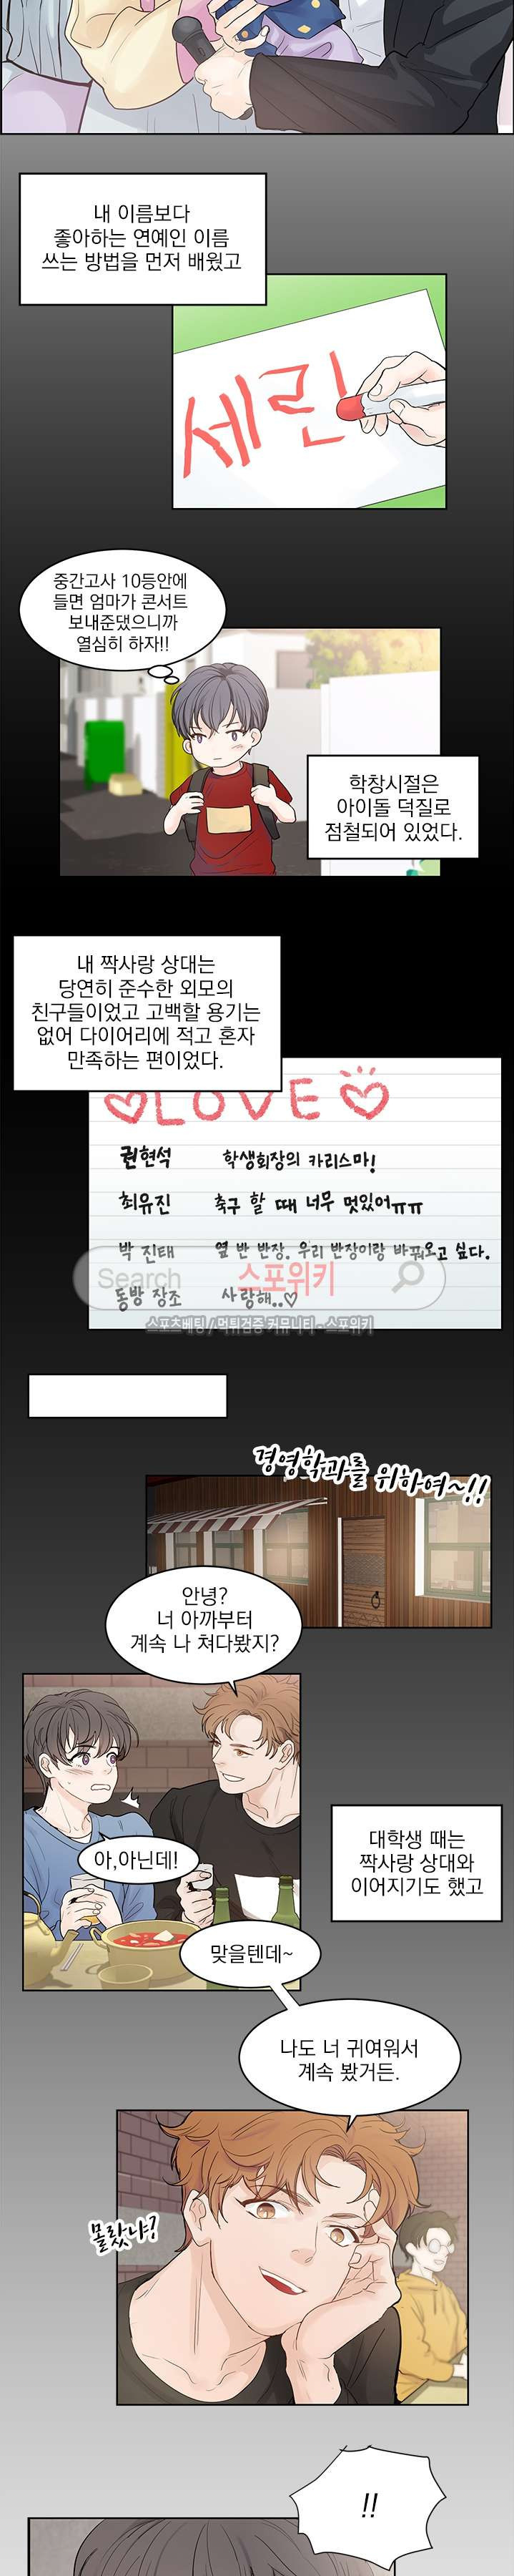 내 이름보다
좋아하는 연예인 이름
쓰는 방법을 먼저 배웠고
세린
중간고사 10등안에
들면 엄마가 콘서트
보내준댔으니까
열심히 하자!!
학창시절은
아이돌 덕질로
점철되어 있었다.
내 짝사랑 상대는
당연히 준수한 외모의
친구들이었고 고백할 용기는
없어 다이어리에 적고 혼자
만족하는 편이었다.
♡LOVE♡
권현석 학생회장의 카리스마!
최유진 축구 할 때 너무 멋있어ㅠㅠ
박진태 옆 반 반장. 우리 반장이랑 바꿔오고 싶다.
Search 스포위키
동방 장조 사랑해..♡
스포츠베팅 / 먹튀검증 커뮤니티 - 스포위키
경영학과를 위하여~!!
안녕?
너 아까부터
계속 나 쳐다봤지?
아,아닌데!
대학생 때는
짝사랑 상대와
이어지기도 했고
맞을텐데~
나도 너 귀여워서
계속 봤거든.
몰랐냐?
!!